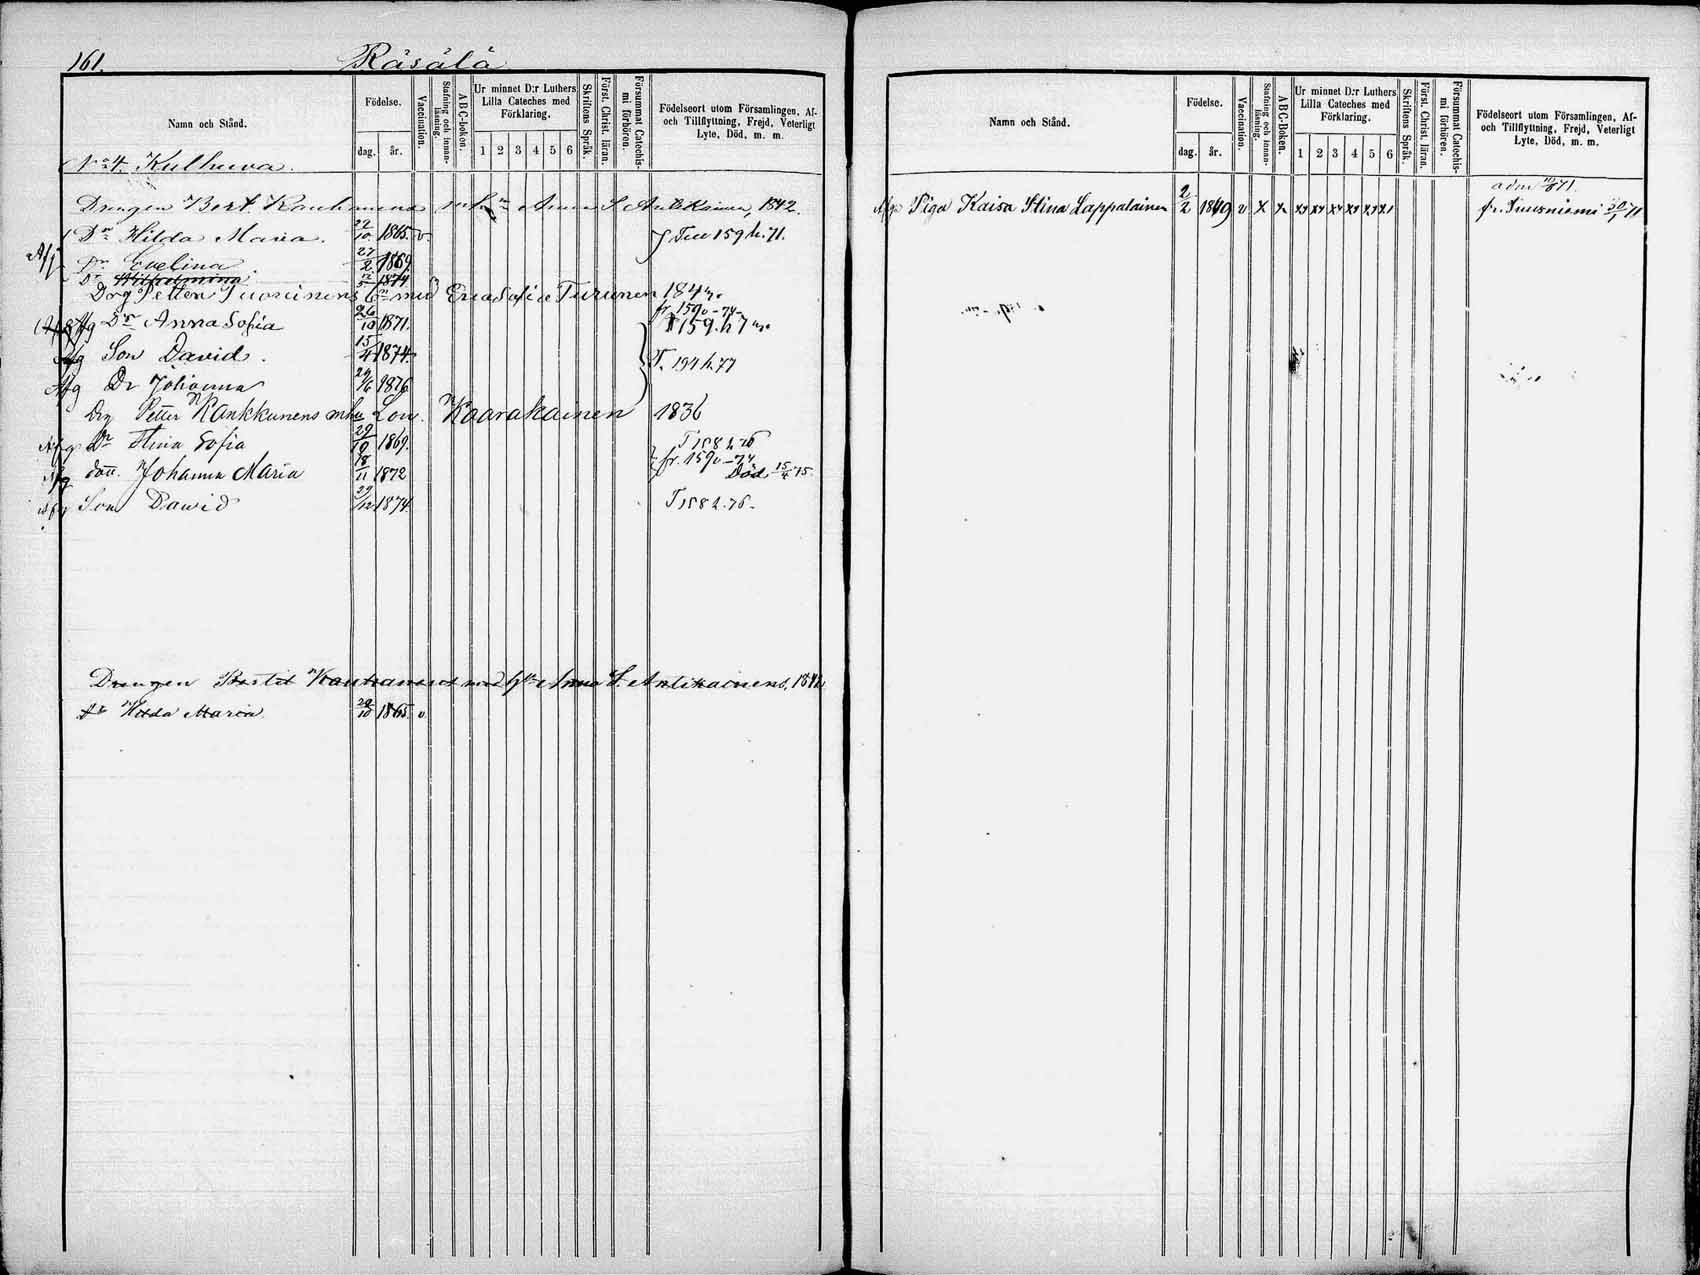 161. Räsälä
Namn och Stånd.
Födelse.
dag. år.
Vaccination.
Stafning och innan-läsning.
A B C-boken.
Ur minnet D:r Luthers Lilla Cateches med Förklaring.
1 2 3 4 5 6
Skriftens Språk.
Först. Christ. läran.
Försummat Catechis-mi förhören.
Födelseort utom Församlingen, Af- och Tillflyttning, Frejd, Veterligt Lyte, Död, m. m.
No 4. Kulhuva.
Drengen Bert. Kauhanens m h n Anna S. Antikainen, 1842.
Dr Hilda Maria. 22/10 1865. v. Till 159 h. 71.
Afg Dr Evelina 27/2 1869.
Dr Wilhelmina 1874
Drg Petter Tuovinens Enka Sofia Turunen 1844
Afg Dr Anna Sofia 26/10 1871. fr. 159 v - 74. T 159. h 7
Afg Son David. 15/4 1874. T. 194 h. 77
Afg Dr Johanna 24/6 1876
Drg Petter Kankkunens mhu Lov. Kaarakainen 1836
Afg Dr Stina Sofia 29/9 1869. T 158 2. 76
Afg dott. Johanna Maria 18/11 1872 fr. 159 v - 74 Död 15/4 75.
Afg Son Dawid 29/12 1874. T 158 2. 76.
Drengen Bertil Kauhanens med h Anna S. Antikainens, 1842
Dr Hilda Maria. 22/10 1865. v
Namn och Stånd.
Födelse.
dag. år.
Vaccination.
Stafning och innan-läsning.
A B C-Boken.
Ur minnet D:r Luthers Lilla Cateches med Förklaring.
1 2 3 4 5 6
Skriftens Språk.
Först. Christ. läran.
Försummat Catechis-mi förhören.
Födelseort utom Församlingen, Af- och Tillflyttning, Frejd, Veterligt Lyte, Död, m. m.
Afg Piga Kaisa Stina Lappalainen 2/2 1849 v x x x x x x x x fr. Tuusniemi 71